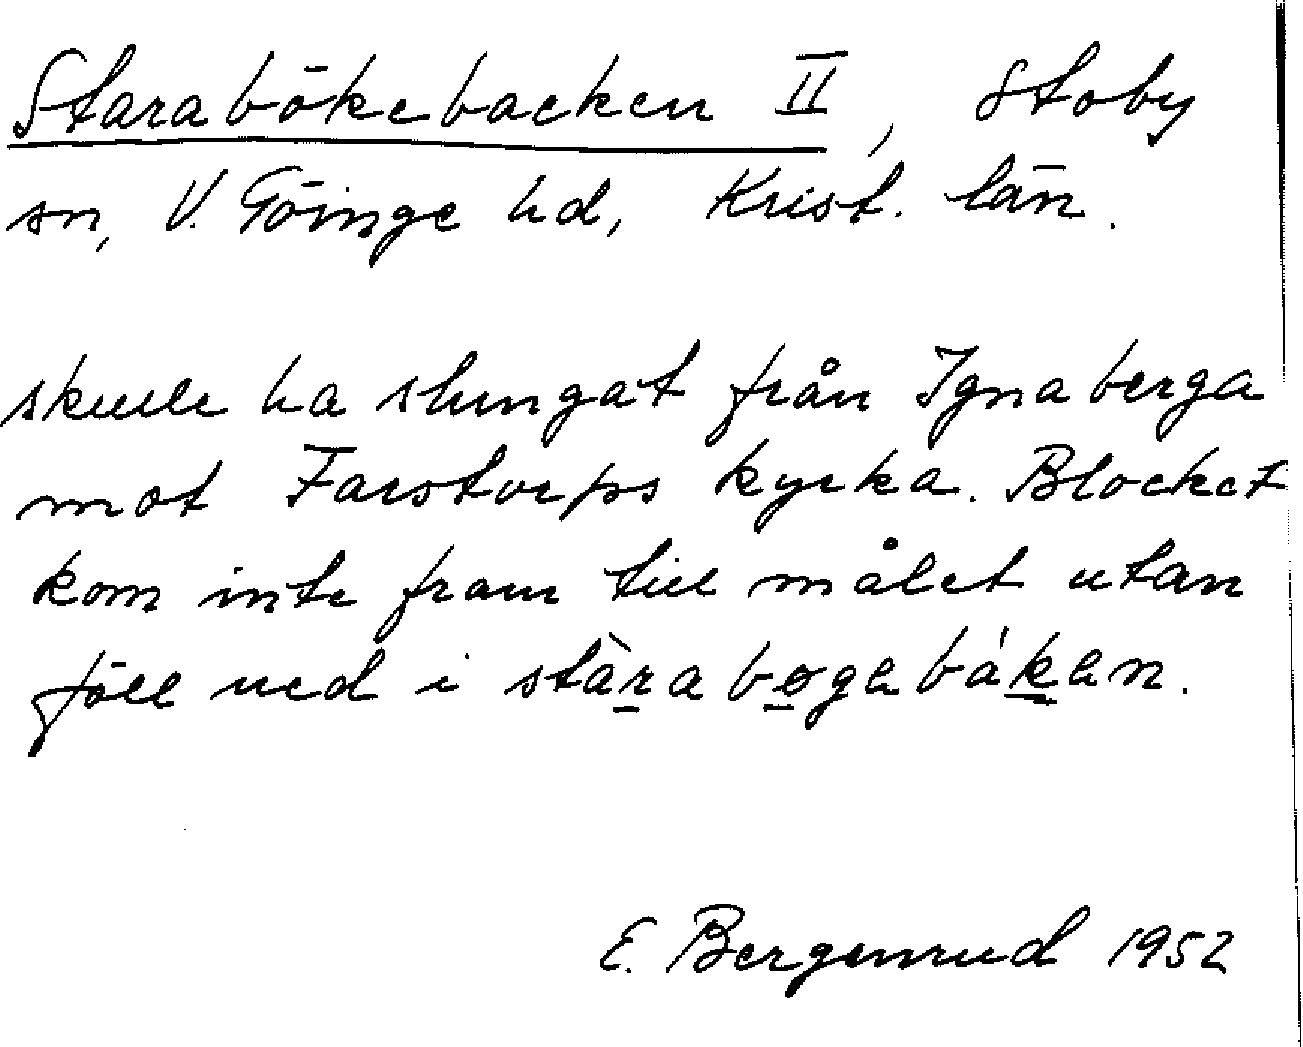 Starabökebacken II, Stoby
sn, V. Göinge hd, Krist. län.
skulle ha slungat från Ignaberga
mot Farstorps kyrka. Blocket
kom inte fram till målet utan
föll ned i stàrabogabákan.
E. Bergenrud 1952